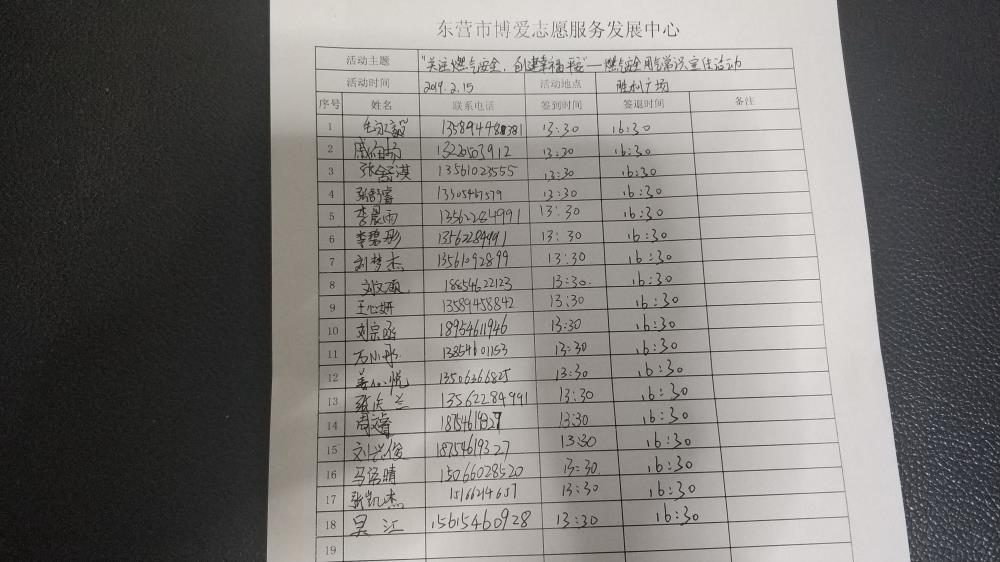 东营市博爱志愿服务发展中心
活动主题 "关注燃气安全,创建幸福平安"—燃气安全用气常识宣传活动
活动时间 2019.2.15 活动地点 胜利广场
序号 姓名 联系电话 签到时间 签退时间 备注
1 13:30 16:30
2 13220503912 13:30 16:30
3 张舒淇 13561023555 13:30 16:30
4 张舒睿 13305467579 13:30 16:30
5 李晨雨 13562284991 13:30 16:30
6 李碧彤 13562284991 13:30 16:30
7 刘梦杰 13561092899 13:30 16:30
8 刘文硕 18854622123 13:30. 16:30
9 王心妍 13589458842 13:30 16:30
10 刘宗函 18954611946 13:30 16:30
11 石小彤 13854601153 13:30 16:30
12 13506366825 13:30 16:30
13 13562284991 13:30 16:30
14 18754619327 13:30 16:30
15 刘兴俊 18754619327 13:30 16:30
16 马语晴 15066028520 13:30. 16:30
17 张凯杰 15166214657 13:30 16:30
18 吴江 15615460928 13:30 16:30
19